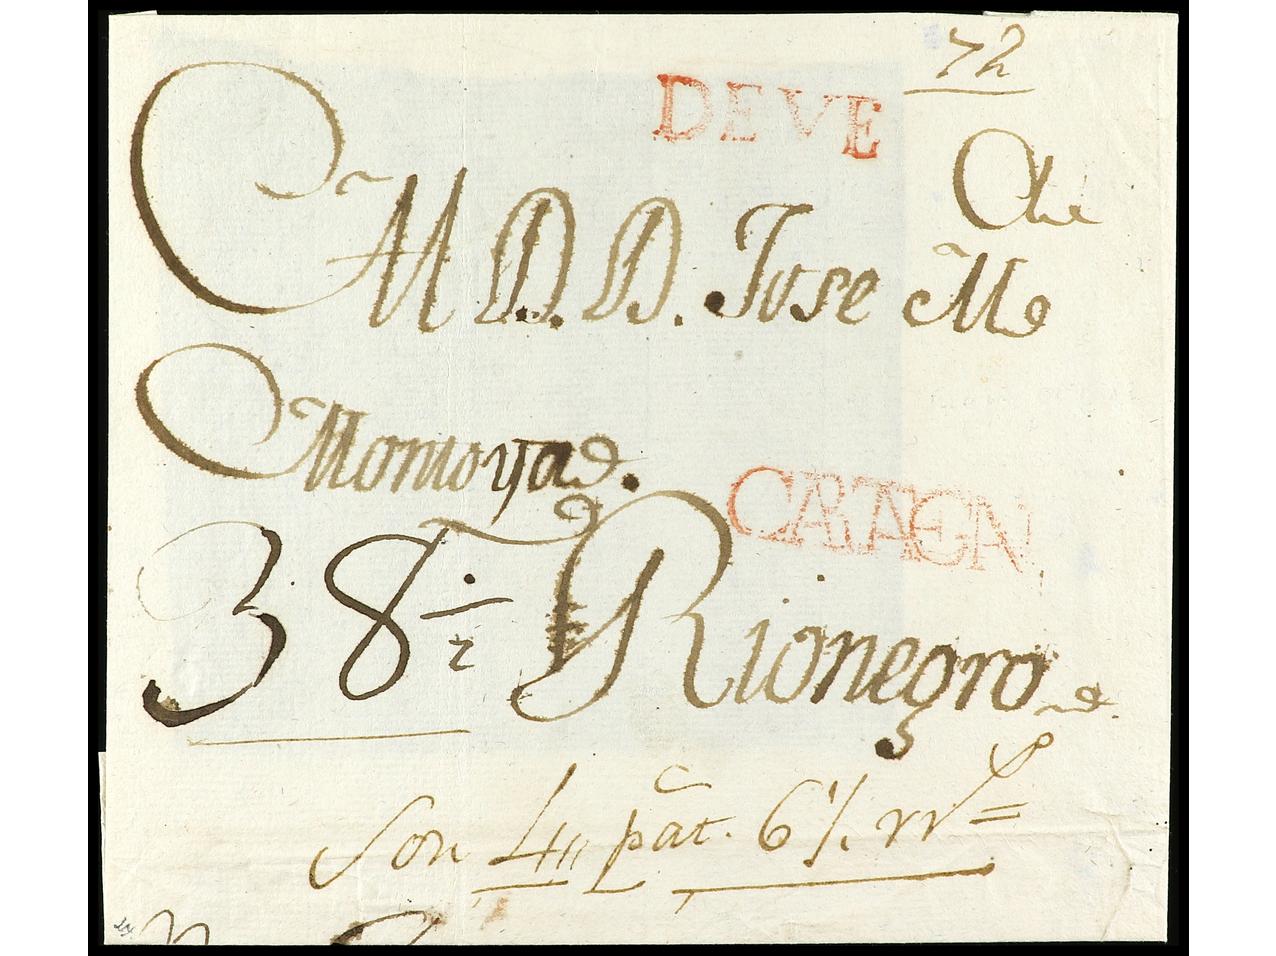 72
DEVE
M D. D. Jose Me
Montoya.
CARTAGENA
38 1/2 Rionegro
Son 4 pat. 6 1/. rrs =